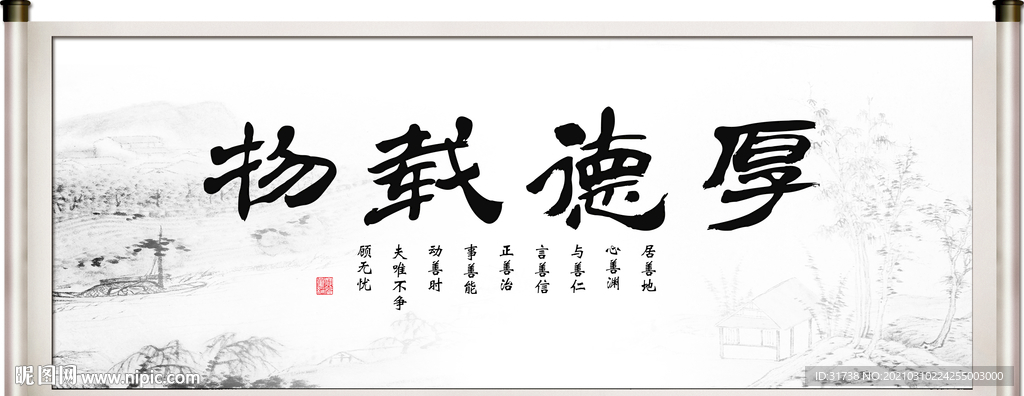 厚德载物
居善地
心善渊
与善仁
言善信
正善治
事善能
动善时
夫唯不争
顾无忧
昵图网 www.nipic.com
ID:31738 NO:20210310224255003000